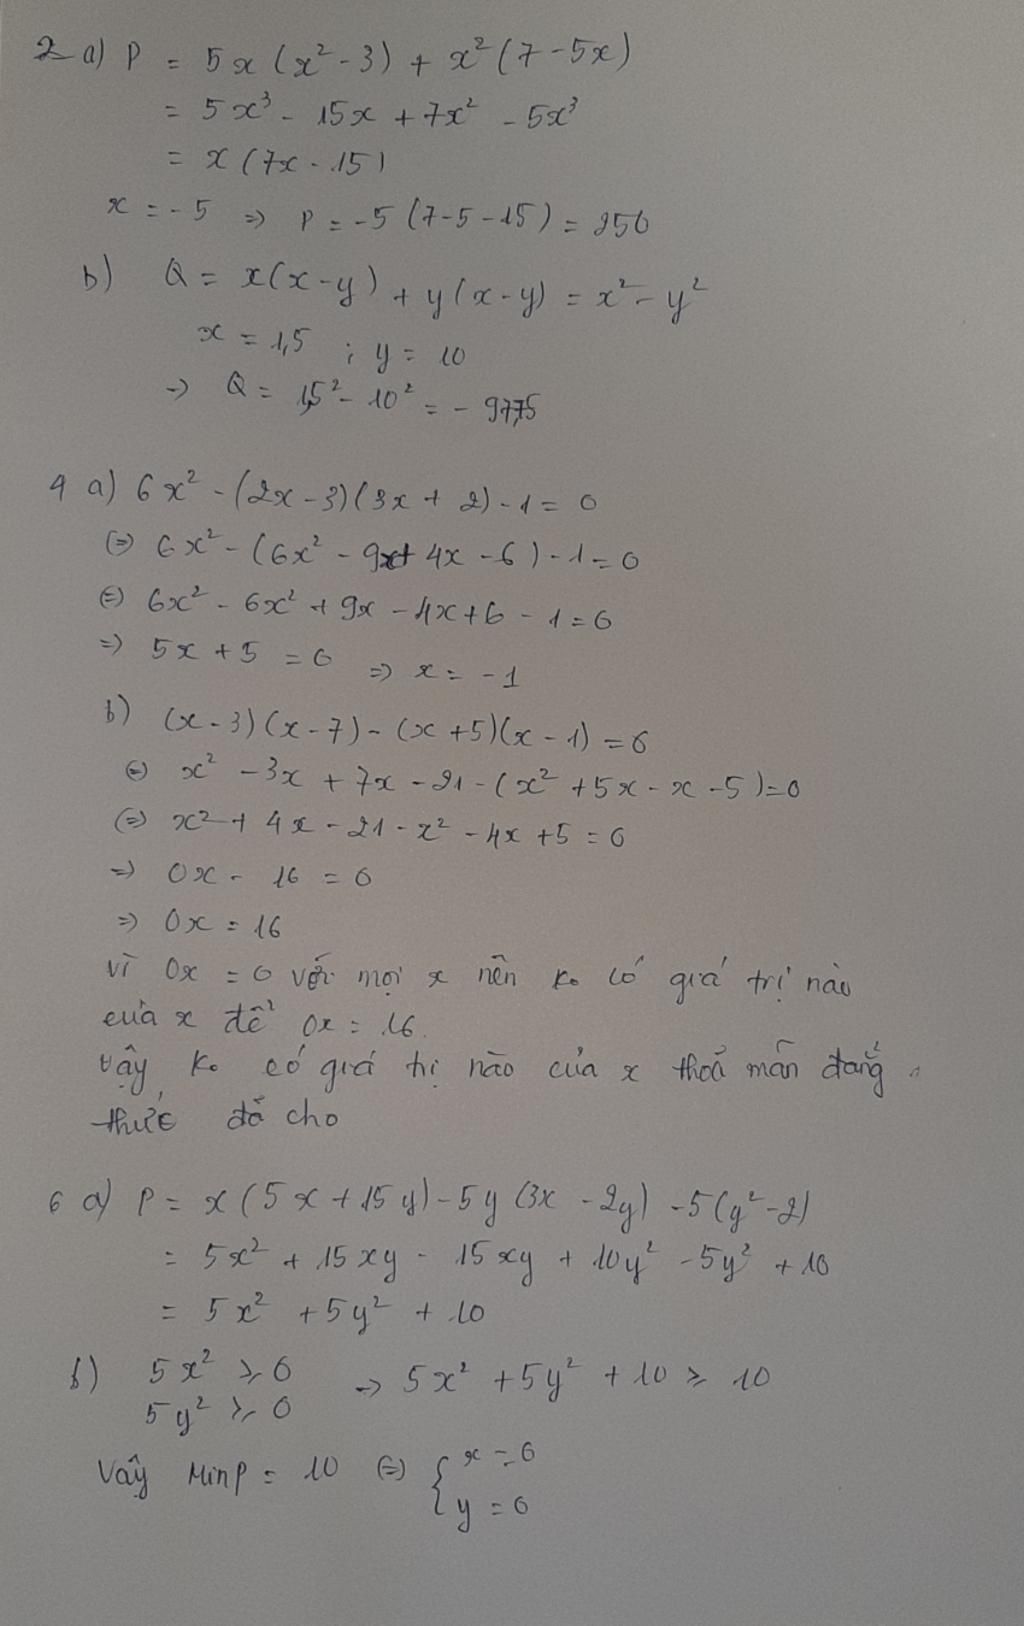 2 a) P = 5x (x² - 3) + x² (7 - 5x)
= 5x³ - 15x + 7x² - 5x³
= x (7x - 15)
x = -5 => P = -5 (7-5-15) = 250
b) Q = x(x-y) + y(x-y) = x² - y²
x = 1,5 ; y = 10
-> Q = 1,5² - 10² = - 97,75
4 a) 6x² - (2x - 3)(3x + 2) - 1 = 0
(=) 6x² - (6x² - 9x + 4x - 6) - 1 = 0
(=) 6x² - 6x² + 9x - 4x + 6 - 1 = 0
=> 5x + 5 = 0 => x = -1
b) (x - 3)(x - 7) - (x + 5)(x - 1) = 0
(=) x² - 3x + 7x - 21 - (x² + 5x - x - 5) = 0
(=) x² + 4x - 21 - x² - 4x + 5 = 0
=> 0x - 16 = 0
=> 0x = 16
vì 0x = 0 với mọi x nên ko có giá trị nào
của x để 0x = 16.
Vậy ko có giá trị nào của x thoả mãn đẳng
thức đã cho
6 a) P = x (5x + 15y) - 5y (3x - 2y) - 5(y² - 2)
= 5x² + 15xy - 15xy + 10y² - 5y² + 10
= 5x² + 5y² + 10
b) 5x² ≥ 0 -> 5x² + 5y² + 10 ≥ 10
5y² ≥ 0
Vậy MinP = 10 (=) { x = 0
y = 0